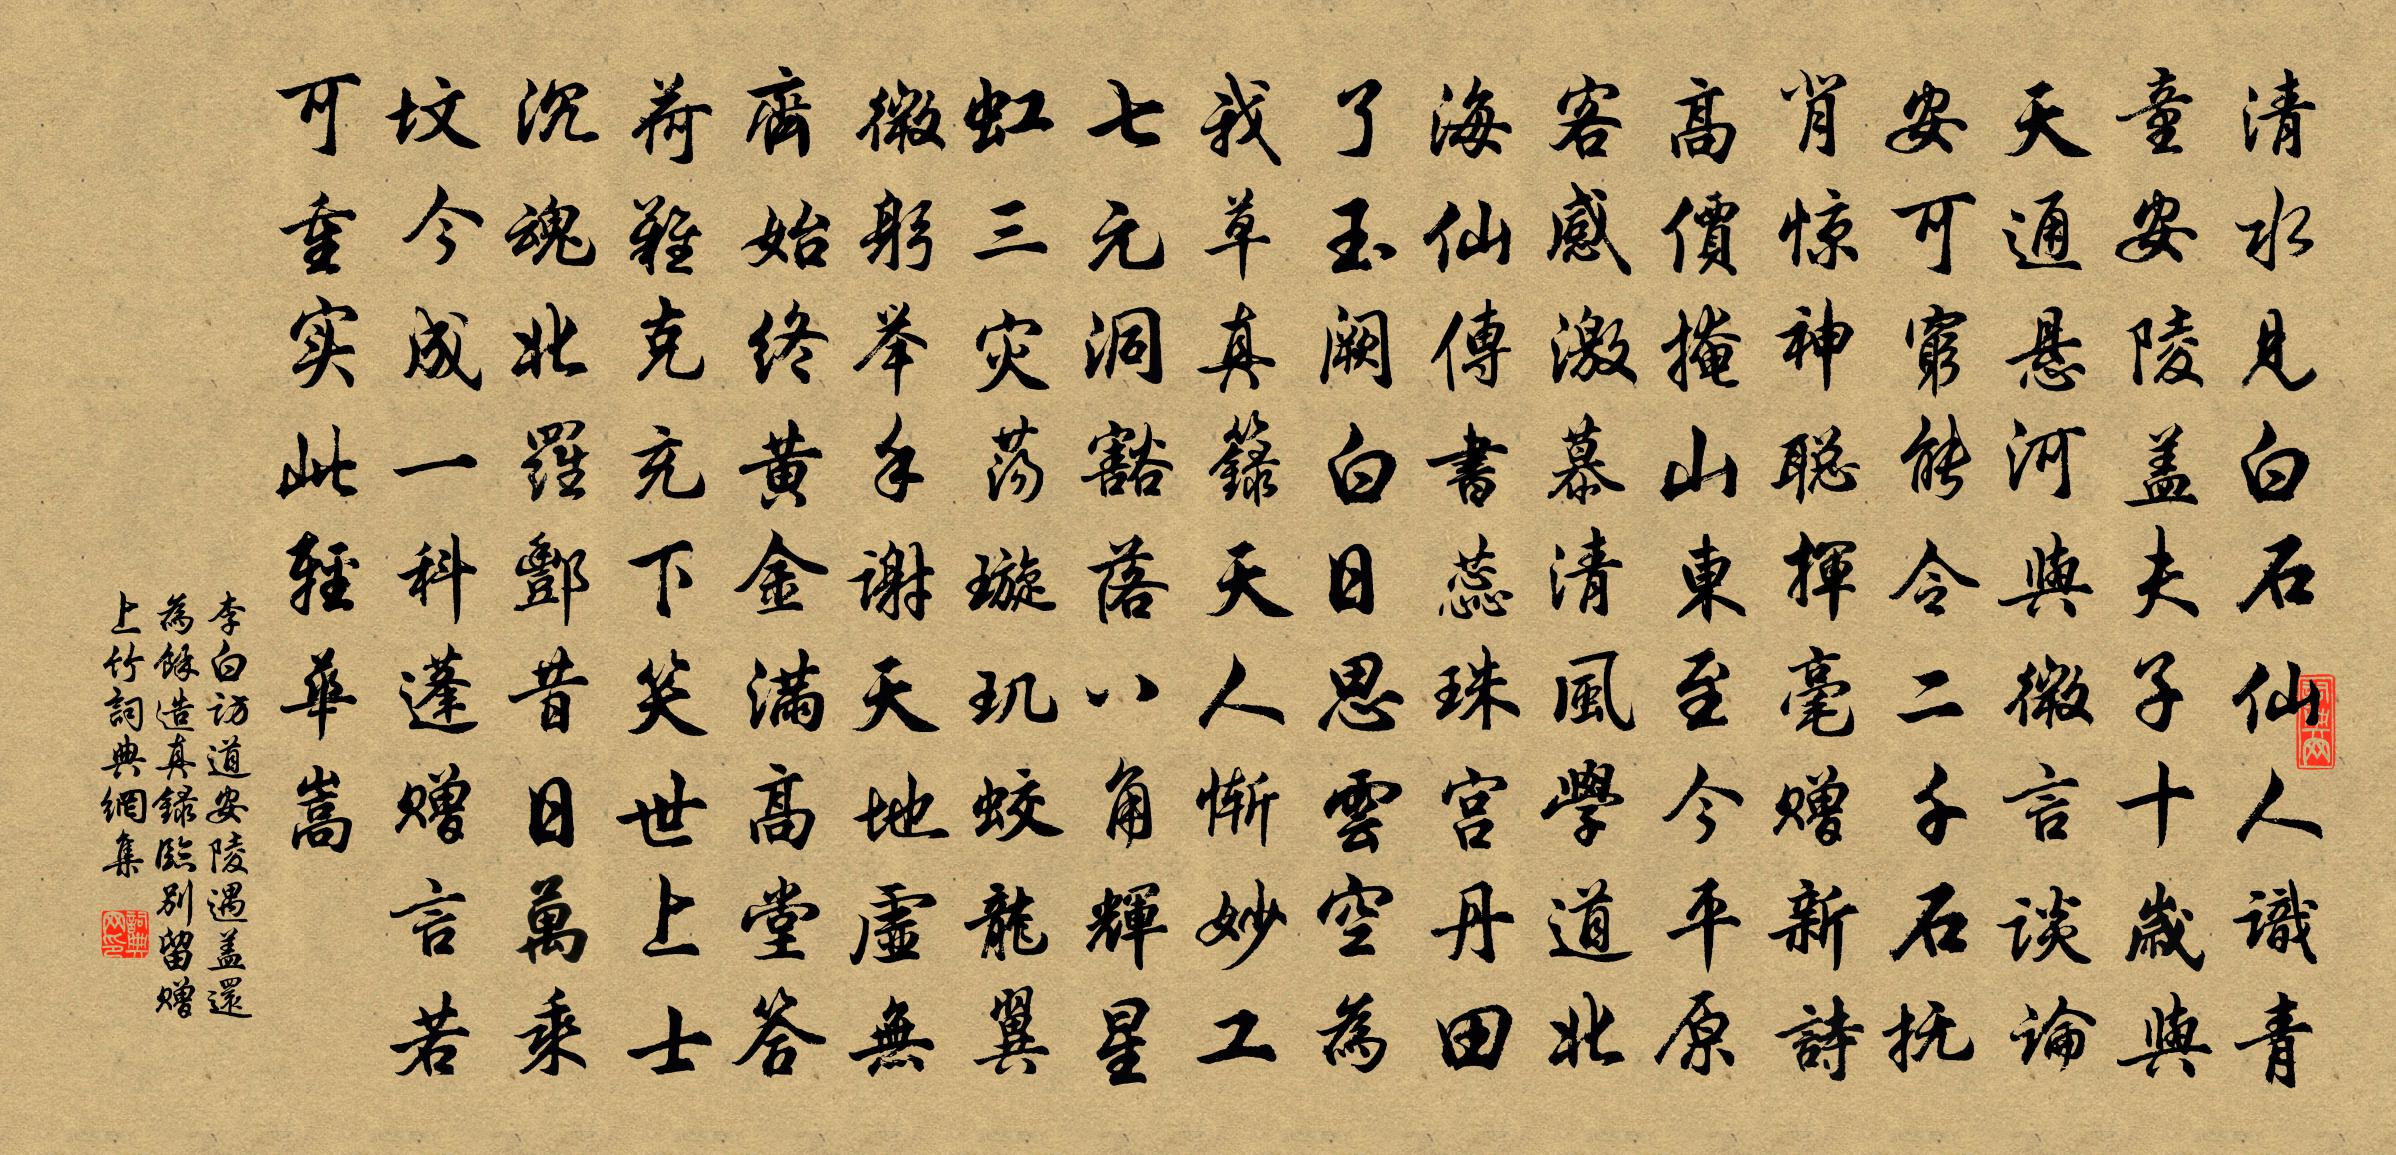 清水見白石仙人識青
童安陵盖夫子十歲與
天通懸河與微言談論
安可窮能令二千石抚
背惊神聪揮毫赠新詩
高價掩山東至今平原
客感激慕清風學道北
海仙傳書蕊珠宫丹田
了玉阙白日思雲空為
我草真籙天人慚妙工
七元洞豁落八角輝星
虹三灾荡璇玑蛟龍翼
微躬举手謝天地虛無
齊始终黄金满高堂答
荷難克充下笑世上士
沉魂北羅酆昔日萬乘
坟今成一科蓬赠言若
可重实此輕華嵩
李白访道安陵遇盖還
為餘造真籙臨别留赠
上竹詞典網集